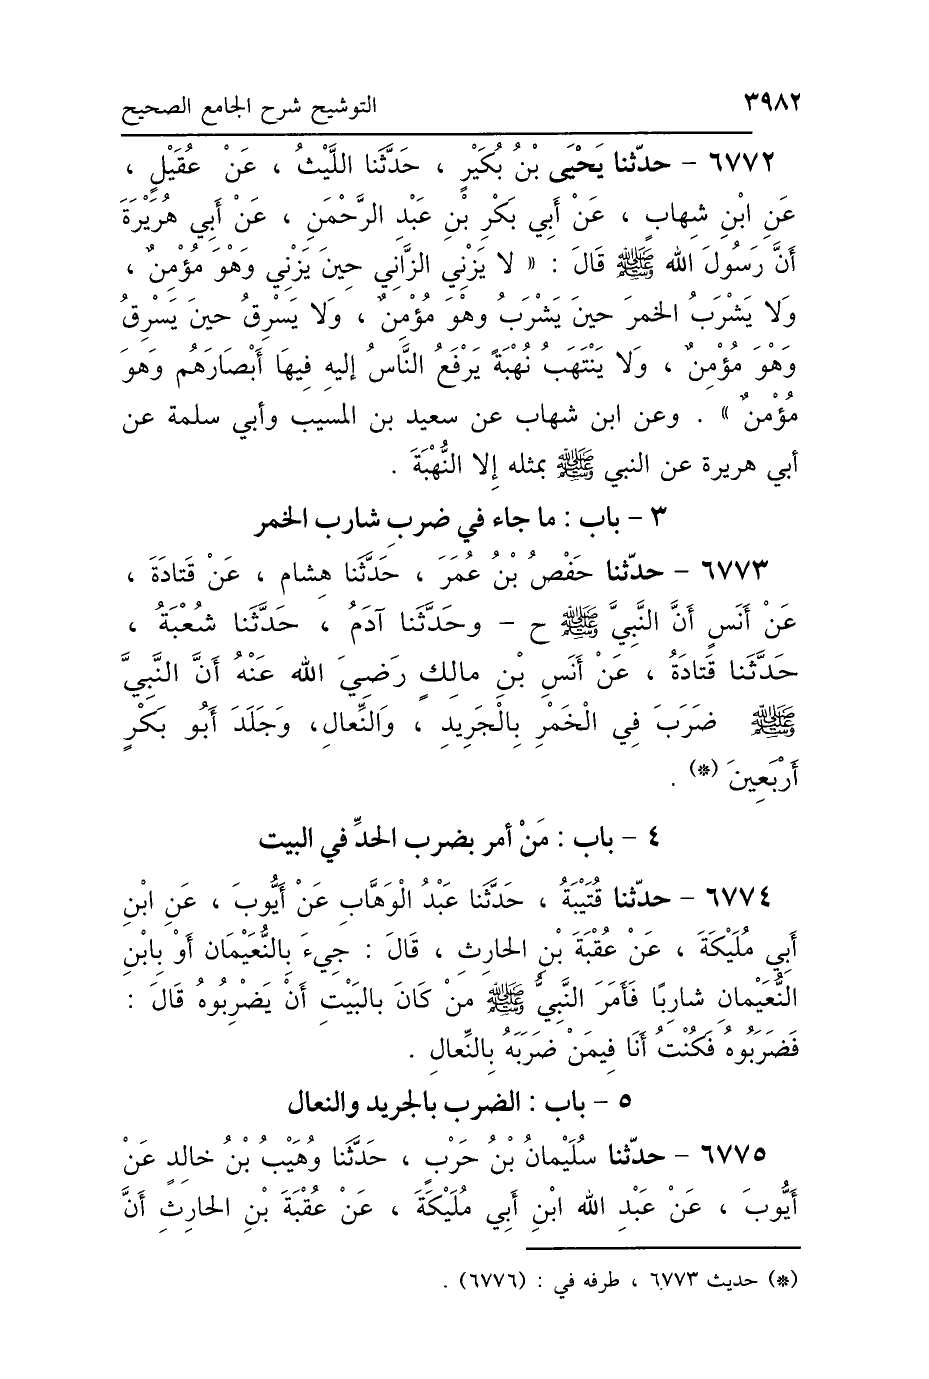 ٣٩٨٢ التوشيح شرح الجامع الصحيح
٦٧٧٢ – حدّثنا يَحْيَى بْنُ بُكَيْرٍ ، حَدَّثَنا اللَّيْثُ ، عَنْ عُقَيْلٍ ،
عَنِ ابْنِ شِهابٍ ، عَنْ أَبي بَكْرِ بْنِ عَبْدِ الرَّحْمَنِ ، عَنْ أَبي هُرَيْرَةَ
أَنَّ رَسُولَ الله ﷺ قَالَ : « لا يَزْنِي الزَّانِي حِينَ يَزْنِي وَهْوَ مُؤْمِنٌ ،
وَلا يَشْرَبُ الخمرَ حينَ يَشْرَبُ وهْوَ مُؤْمِنٌ ، وَلا يَسْرِقُ حينَ يَسْرِقُ
وَهْوَ مُؤْمِنٌ ، وَلا يَنْتَهِبُ نُهْبَةً يَرْفَعُ النَّاسُ إليهِ فِيهَا أَبْصَارَهُم وهْوَ
مُؤْمنٌ » . وعن ابن شهاب عن سعيد بن المسيب وأبي سلمة عن
أبي هريرة عن النبي ﷺ بمثله إلا النُّهْبَةَ .
٣ – باب : ما جاء في ضربِ شاربِ الخمر
٦٧٧٣ – حدّثنا حَفْصُ بْنُ عُمَرَ ، حَدَّثَنا هِشام ، عَنْ قَتادَةَ ،
عَنْ أَنَسٍ أَنَّ النَّبِيَّ ﷺ ح – وحَدَّثَنا آدَمُ ، حَدَّثَنا شُعْبَةُ ،
حَدَّثَنا قَتادَةُ ، عَنْ أَنَسِ بْنِ مالِكٍ رَضِيَ الله عَنْهُ أَنَّ النَّبِيَّ
ﷺ ضَرَبَ فِي الْخَمْرِ بِالْجَرِيدِ ، وَالنِّعالِ، وَجَلَدَ أَبُو بَكْرٍ
أَرْبَعِينَ (*) .
٤ – باب : مَنْ أمر بضرب الحدِّ في البيت
٦٧٧٤ – حدّثنا قُتَيْبَةُ ، حَدَّثَنا عَبْدُ الْوَهَّابِ عَنْ أَيُّوبَ ، عَنِ ابْنِ
أَبِي مُلَيْكَةَ ، عَنْ عُقْبَةَ بْنِ الحارِثِ ، قَالَ : جِيءَ بِالنُّعَيْمَانِ أَوْ بِابْنِ
النُّعَيْمانِ شارِبًا فَأَمَرَ النَّبِيُّ ﷺ مَنْ كَانَ بالبَيْتِ أَنْ يَضْرِبُوهُ قَالَ :
فَضَرَبُوهُ فَكُنْتُ أَنَا فِيمَنْ ضَرَبَهُ بِالنِّعالِ .
٥ – باب : الضرب بالجريد والنعال
٦٧٧٥ – حدّثنا سُلَيْمانُ بْنُ حَرْبٍ ، حَدَّثَنا وُهَيْبُ بْنُ خالِدٍ عَنْ
أَيُّوبَ ، عَنْ عَبْدِ الله ابْنِ أَبي مُلَيْكَةَ ، عَنْ عُقْبَةَ بْنِ الحارِثِ أَنَّ
(*) حديث ٦٧٧٣ ، طرفه في : (٦٧٧٦) .